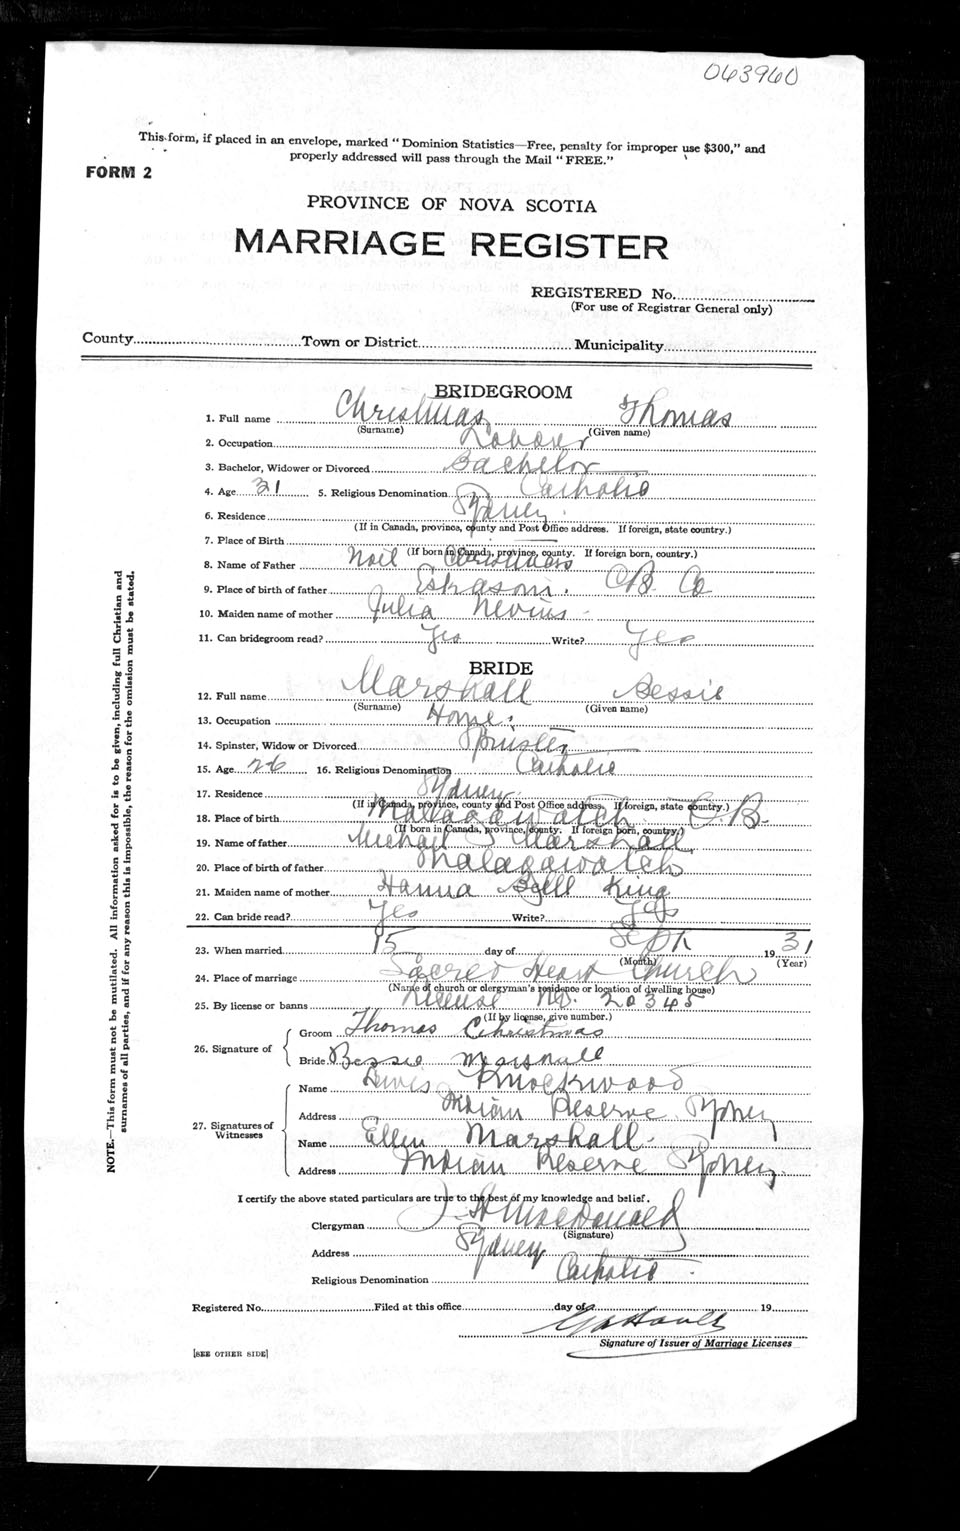 063960
This form, if placed in an envelope, marked "Dominion Statistics—Free, penalty for improper use $300," and
properly addressed will pass through the Mail "FREE."
FORM 2
PROVINCE OF NOVA SCOTIA
MARRIAGE REGISTER
REGISTERED No.
(For use of Registrar General only)
County Town or District Municipality
BRIDEGROOM
1. Full name Christmas Thomas
(Surname) (Given name)
2. Occupation Labour
3. Bachelor, Widower or Divorced Bachelor
4. Age 31 5. Religious Denomination Catholic
6. Residence Sydney.
(If in Canada, province, county and Post Office address. If foreign, state country.)
7. Place of Birth
(If born in Canada, province, county. If foreign born, country.)
8. Name of Father Noil Christmas
9. Place of birth of father Eskasoni. C.B. Co
10. Maiden name of mother Julia Nevins
11. Can bridegroom read? Yes Write? Yes
BRIDE
12. Full name Marshall Bessie
(Surname) (Given name)
13. Occupation Home.
14. Spinster, Widow or Divorced Spinster
15. Age 26 16. Religious Denomination Catholic
17. Residence Sydney.
(If in Canada, province, county and Post Office address. If foreign, state country.)
18. Place of birth Mallagawatch C.B.
(If born in Canada, province, county. If foreign born, country.)
19. Name of father Michael S Marshall
20. Place of birth of father Malagawatch
21. Maiden name of mother Hanna Bell King
22. Can bride read? Yes Write? Yes
23. When married 15 day of Sept 1931
(Month) (Year)
24. Place of marriage Sacred Heart Church
(Name of church or clergyman's residence or location of dwelling house)
25. By license or banns License No. 20345
(If by license, give number.)
26. Signature of
Groom Thomas Christmas
Bride Bessie Marshall
27. Signatures of Witnesses
Name Lewis Knockwood
Address Indian Reserve Sydney
Name Ellen Marshall.
Address Indian Reserve Sydney.
I certify the above stated particulars are true to the best of my knowledge and belief.
Clergyman MacDonald
(Signature)
Address Sydney
Religious Denomination Catholic.
Registered No. Filed at this office day of 19
Signature of Issuer of Marriage Licenses
[SEE OTHER SIDE]
NOTE.—This form must not be mutilated. All information asked for is to be given, including full Christian and
surnames of all parties, and if for any reason this is impossible, the reason for the omission must be stated.